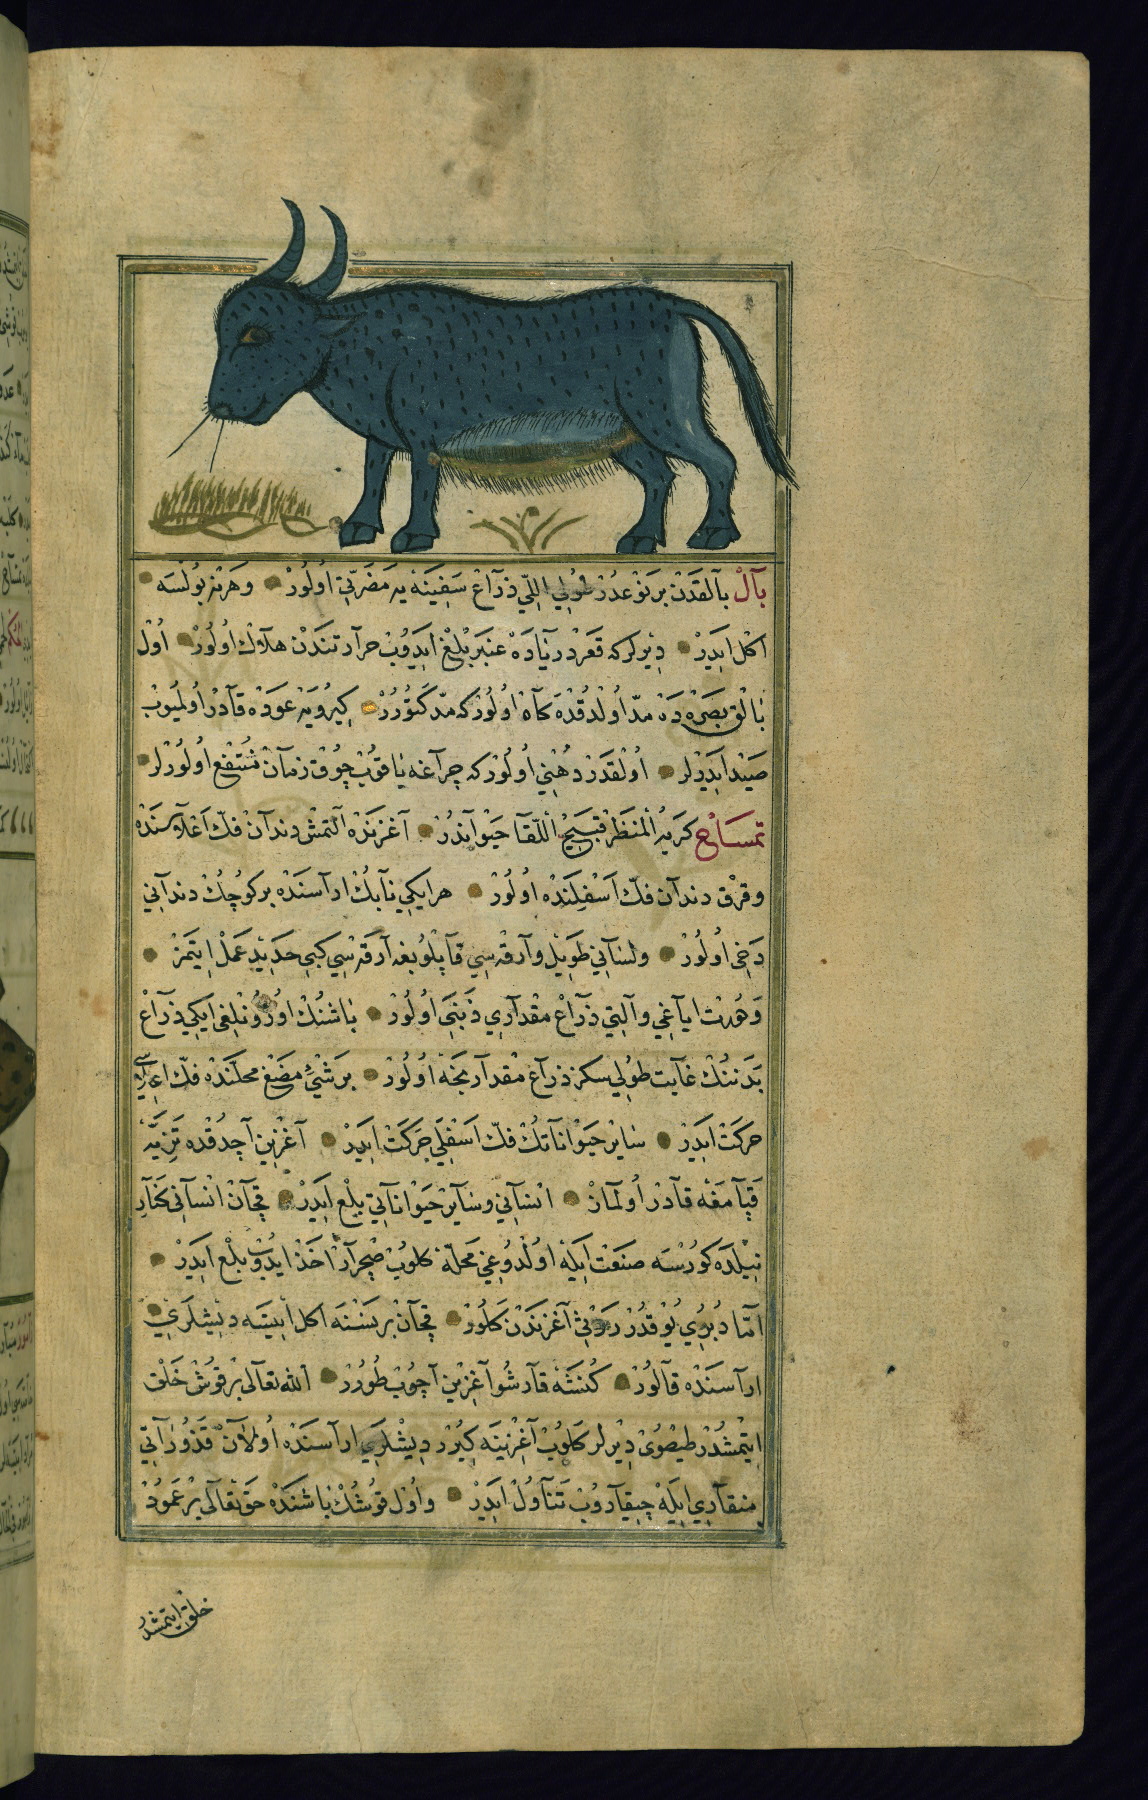 بآلْ بآلقدن بر نوعدر طولي اللّي ذراع سفينه يه مضرّتي اولور وهر نه بولسه
اكل ايدر ديرلر كه قعر دريآده عنبر بلغ ايدوب حرارتندن هلاك اولور اول
بالق بصره ده مدّ اولدقده كآه اولور كه مد كتورر كيرويه عوده قادر اولميوب
صيد ايدرلر اولقدر دهني اولور كه چراغه ياقوب چوق زمان منتفع اولورلر
تمساح كريه المنظر قبيح اللقا حيواندر آغزنده آلتمش دندان فكّ اعلاسنده
وقرق دندان فكّ اسفلنده اولور هر ايكي نابك اراسنده بر كوچك دنداني
دخي اولور ولساني طويل وآرقه سي قاپلوبغه آرقه سي كبي حديد عمل ايتمز
ودرت اياغي وآلتي ذراع مقداري ذنبي اولور باشنك اوزونلغي ايكي ذراع
بدننك غايت طولي سكز ذراع مقدارنجه اولور بر شئ مضغ محلنده فكّ اعلاسي
حركت ايدر ساير حيواناتك فكّ اسفلي حركت ايدر آغزين آچدقده تيز يه
قپامغه قادر اولماز انساني وساير حيواناتي بلع ايدر قچان انساني كنار
نيلده كورسه صنعت ايله اولدوغي محلّه كلوب صچرار اخذ ايدوب بلع ايدر
امّا دبري يوقدر روثي آغزندن كلور قچان بر نسنه اكل ايتسه ديشلري
اراسنده قالور كنشه قارشو آغزين آچوب طورر الله تعالى بر قوش خلق
ايتمشدر طيطوى ديرلر كلوب آغزينه كيرر ديشلري اراسنده اولان قذوراتي
منقاري ايله چيقاروب تناول ايدر واول قوشك باشنده حق تعالى بر عمود
خلق ايتمشدر